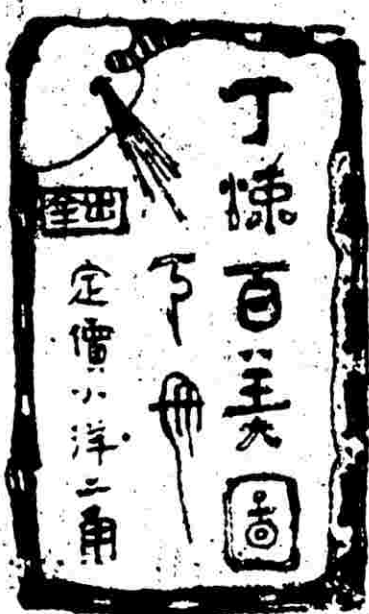 丁悚百美圖
下冊
定價小洋二角